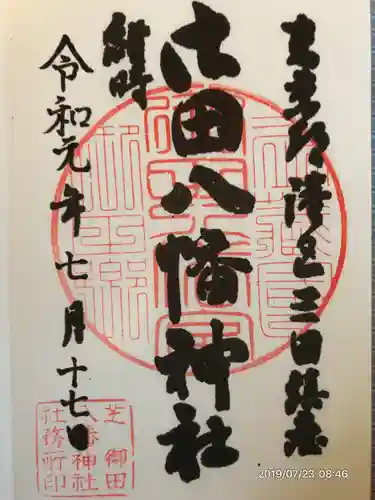 東京都港区三田鎮座
御田八幡神社
令和元年七月十七日
芝御田
八幡神社
社務所印
2019/07/23 08:46